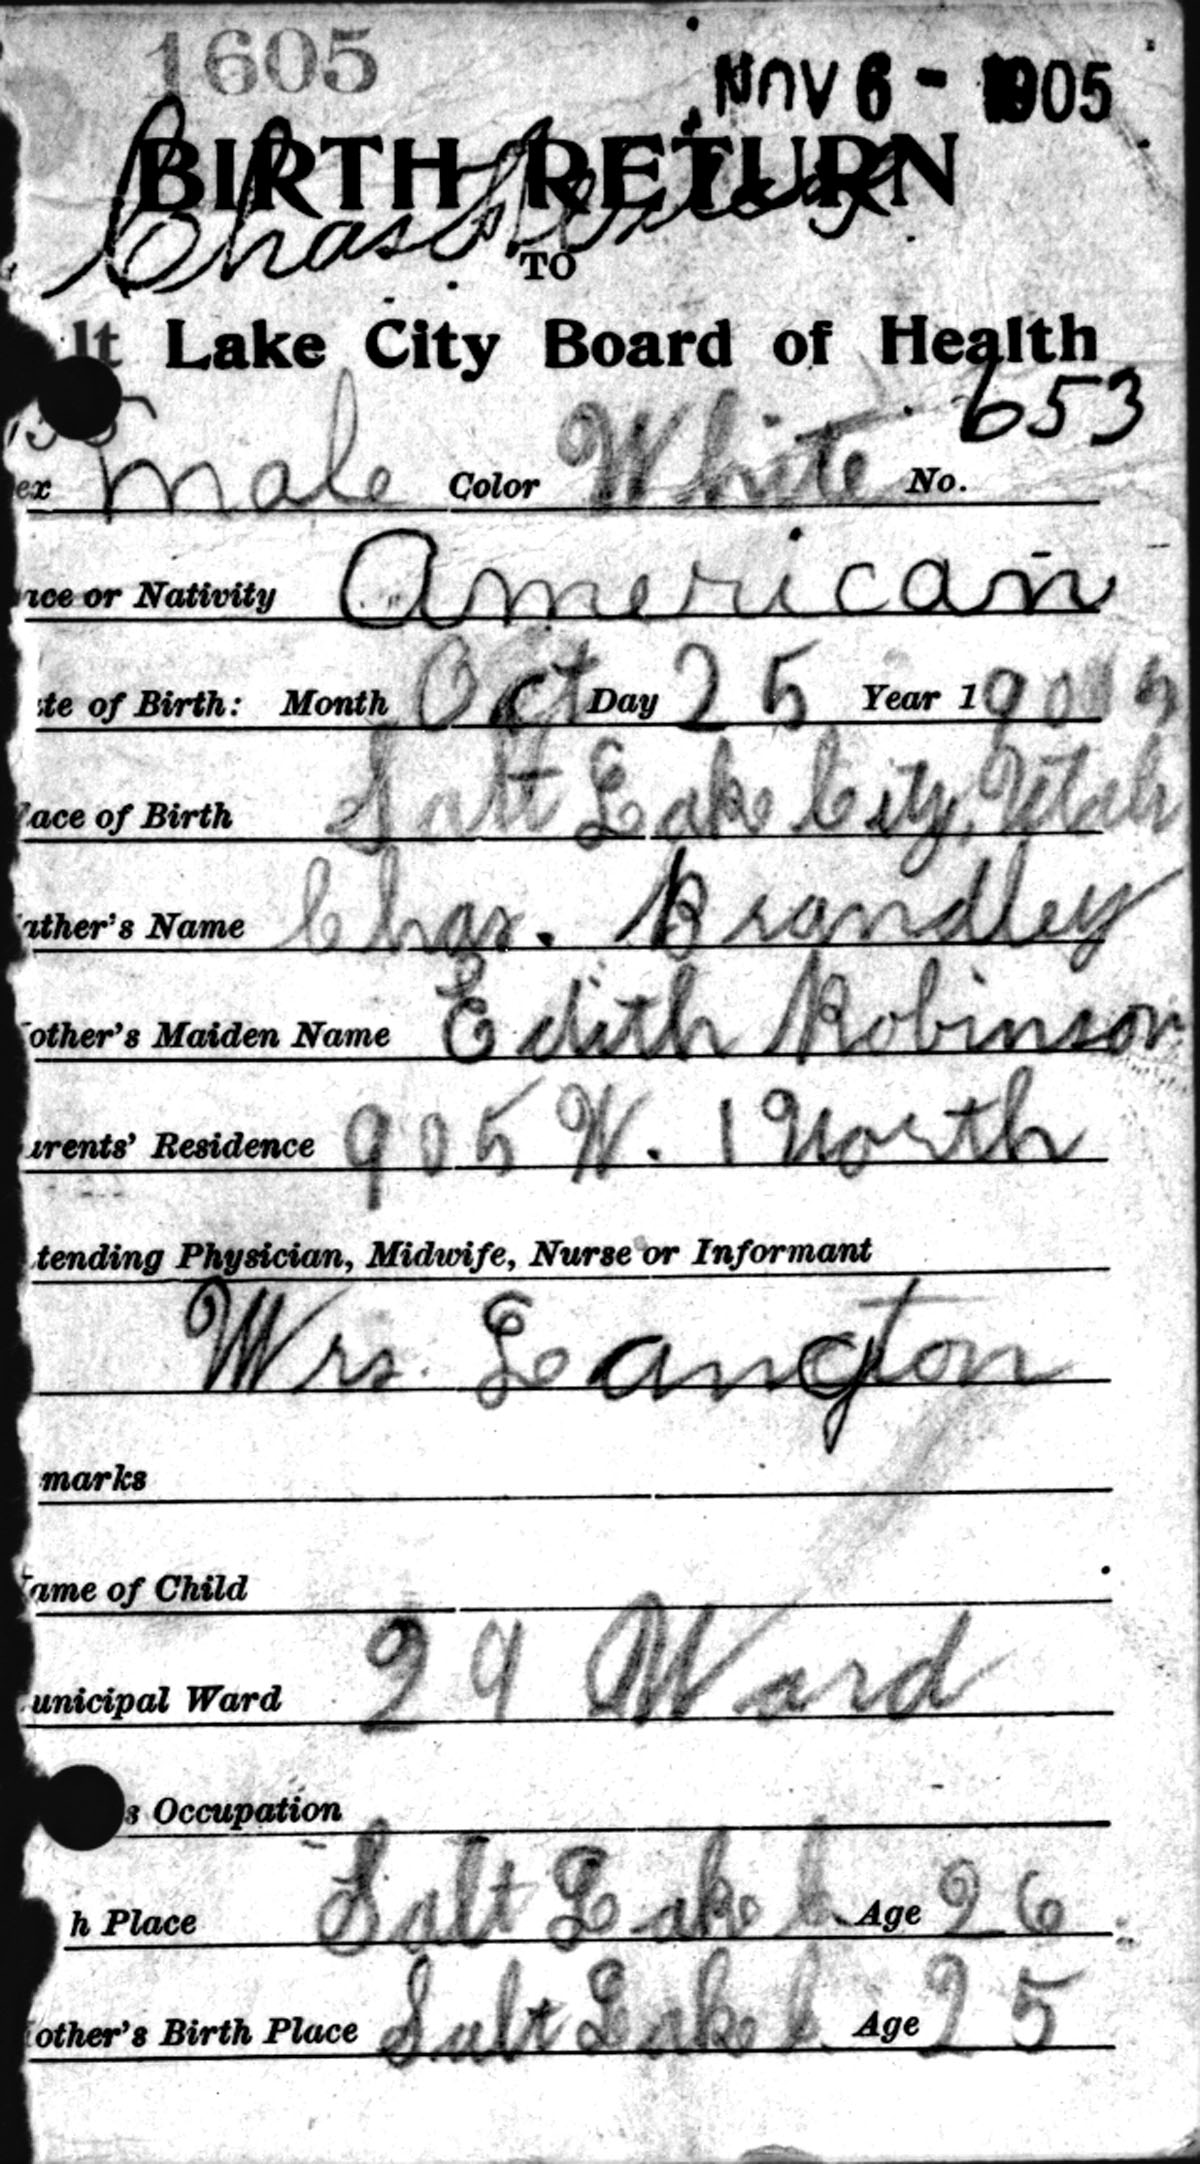 1605
NOV 6 - 1905
BIRTH RETURN
Chas
TO
lt Lake City Board of Health
653
ex male Color White No.
ace or Nativity American
te of Birth: Month Oct Day 25 Year 1905
lace of Birth Salt Lake City, Utah
ather's Name Chas. Brandley
other's Maiden Name Edith Robinson
arents' Residence 905 W. 1 North
tending Physician, Midwife, Nurse or Informant
Mrs. Langton
marks
ame of Child
unicipal Ward 29 Ward
s Occupation
h Place Salt Lake C. Age 26
other's Birth Place Salt Lake C. Age 25